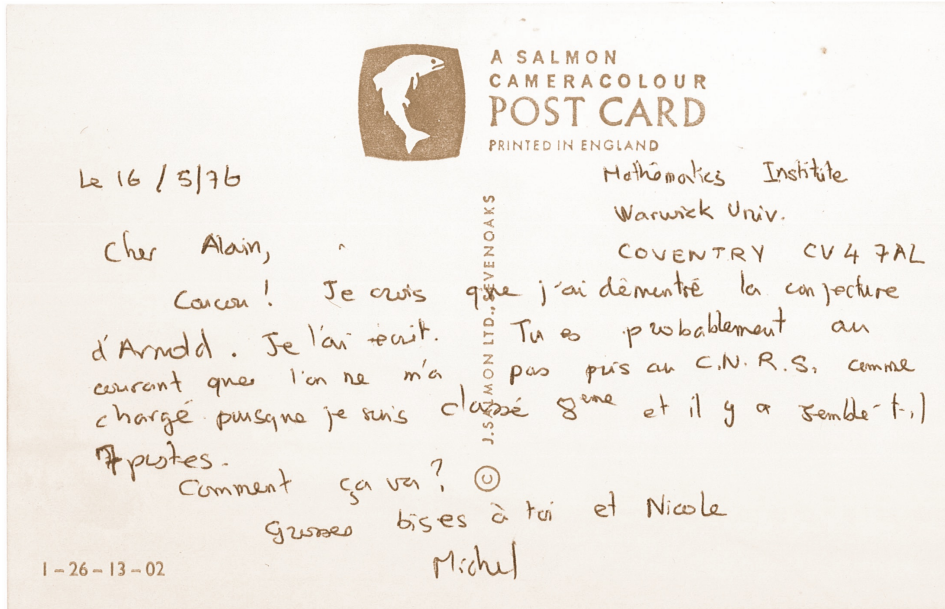 A SALMON
CAMERACOLOUR
POST CARD
PRINTED IN ENGLAND
Le 16 / 5/76
Mathématics Institute
Warwick Univ.
COVENTRY CV4 7AL
Cher Alain,
Coucou ! Je crois que j'ai démontré la conjecture
d'Arnold. Je l'ai écrit. Tu es probablement au
courant que l'on ne m'a pas pris au C.N.R.S. comme
chargé puisque je suis classé 8ème et il y a semble-t-il
7 postes.
Comment ça va ?
Grosses bises à toi et Nicole
Michel
J. SALMON LTD., SEVENOAKS ©
1-26-13-02